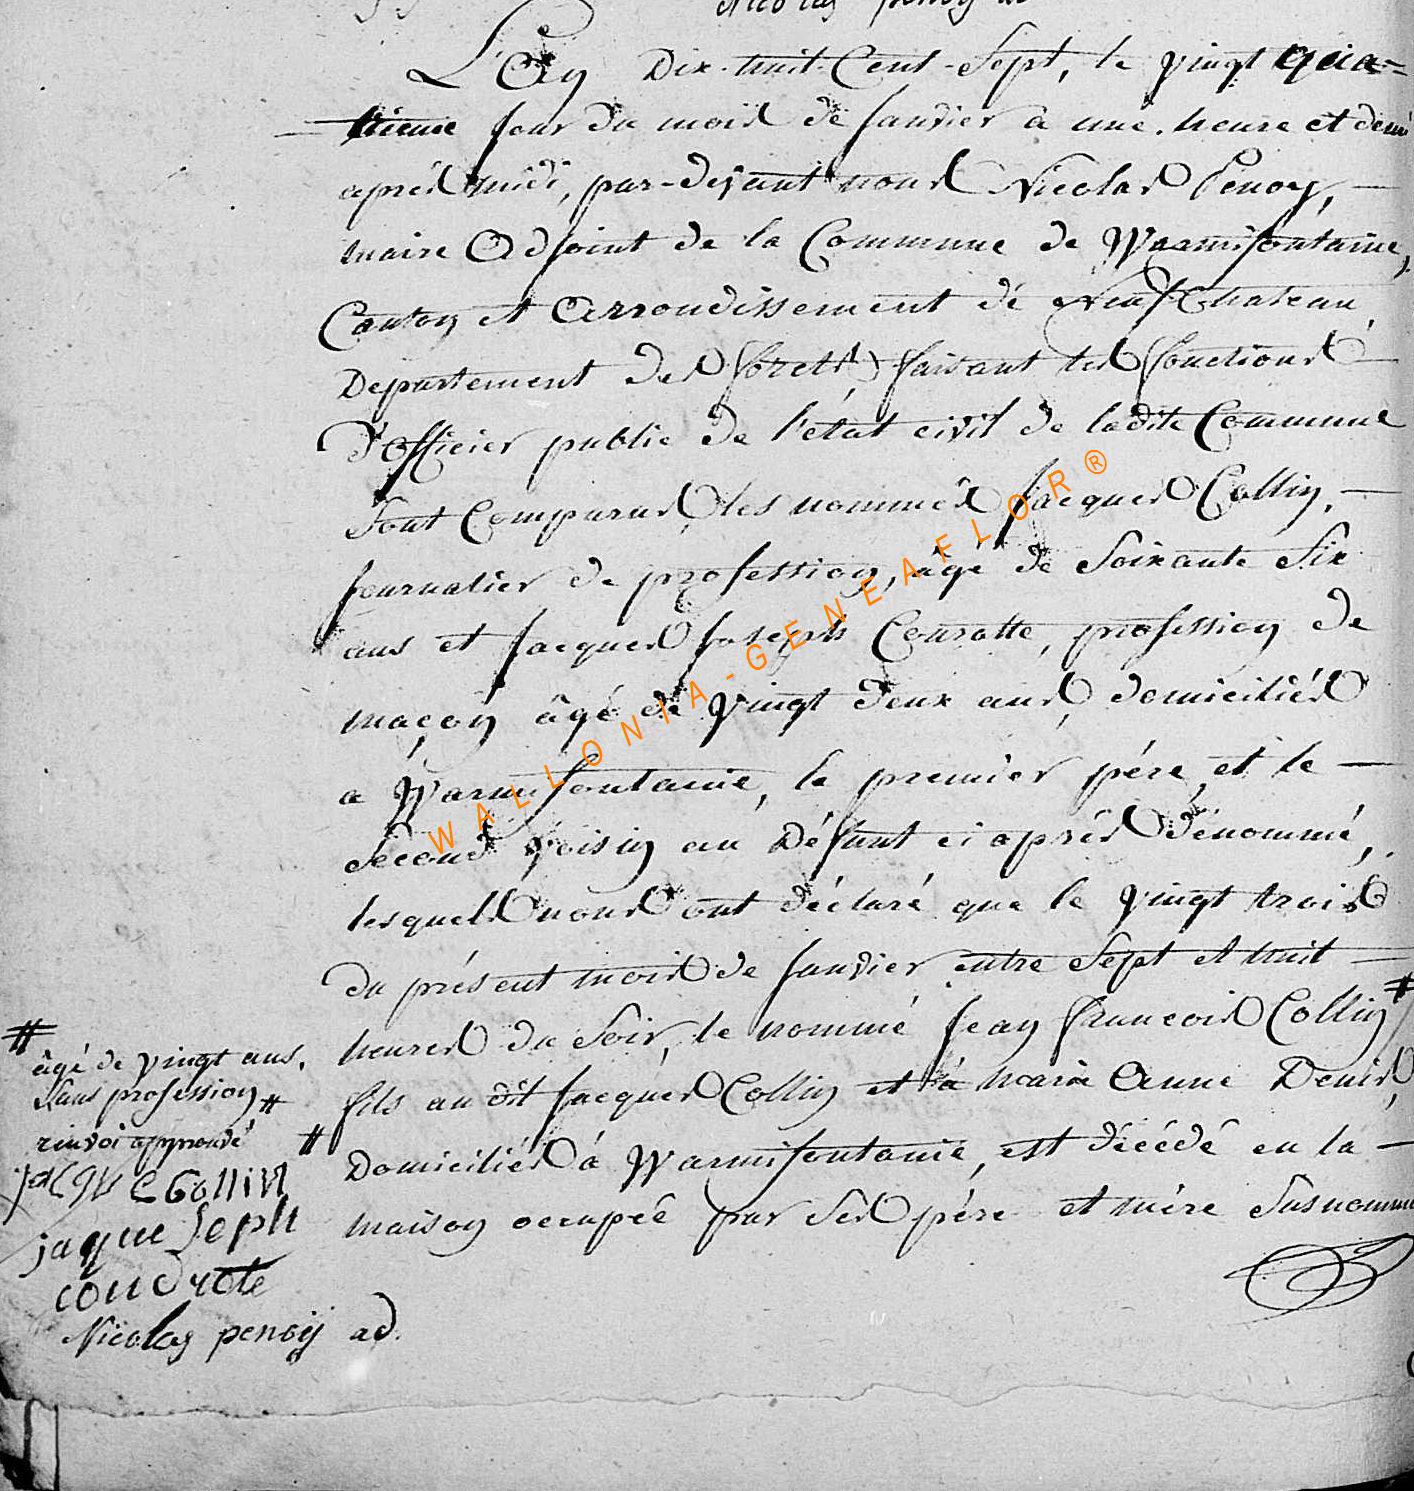 Nicolas penoÿ ad
L'An Dix-huit-Cent-Sept, le vingt quâ=
trieme jour du mois de janvier a une heure et demi
aprés midi, par-devant nous Nicolas Penoy,
maire Adjoint de la Commune de Warmifontaine,
Canton et Arrondissement dé Neufchateau,
Departement des forets, faisant les fonctions
d'officier public de l'état civil de ladite Commune
sont Comparus, les nommés jacques Collin,
journalier de profession, âgé de Soixante Six
ans et jacques joseph Courotte, profession de
maçon âgé de vingt deux ans, domiciliés
a Warmifontaine, le premier pére, et le
Second voisin au Défunt ci aprés dénommé,
lesquels nous ont déclaré que le vingt trois
du présent mois de janvier entre Sept et huit
heures du Soir, le nommé jean françois Collin #
fils au dit jacques Collin et à marie Anne Denis,
Domiciliés à Warmifontaine, est décédé en la
maison occupée par Ses pére et mére Susnommé
#
âgé de vingt ans.
Sans profession #
renvoi approuvé #
Collin
jaque Seph
coudrote
Nicolas penoÿ ad.
WALLONIA-GENEAFLOR®